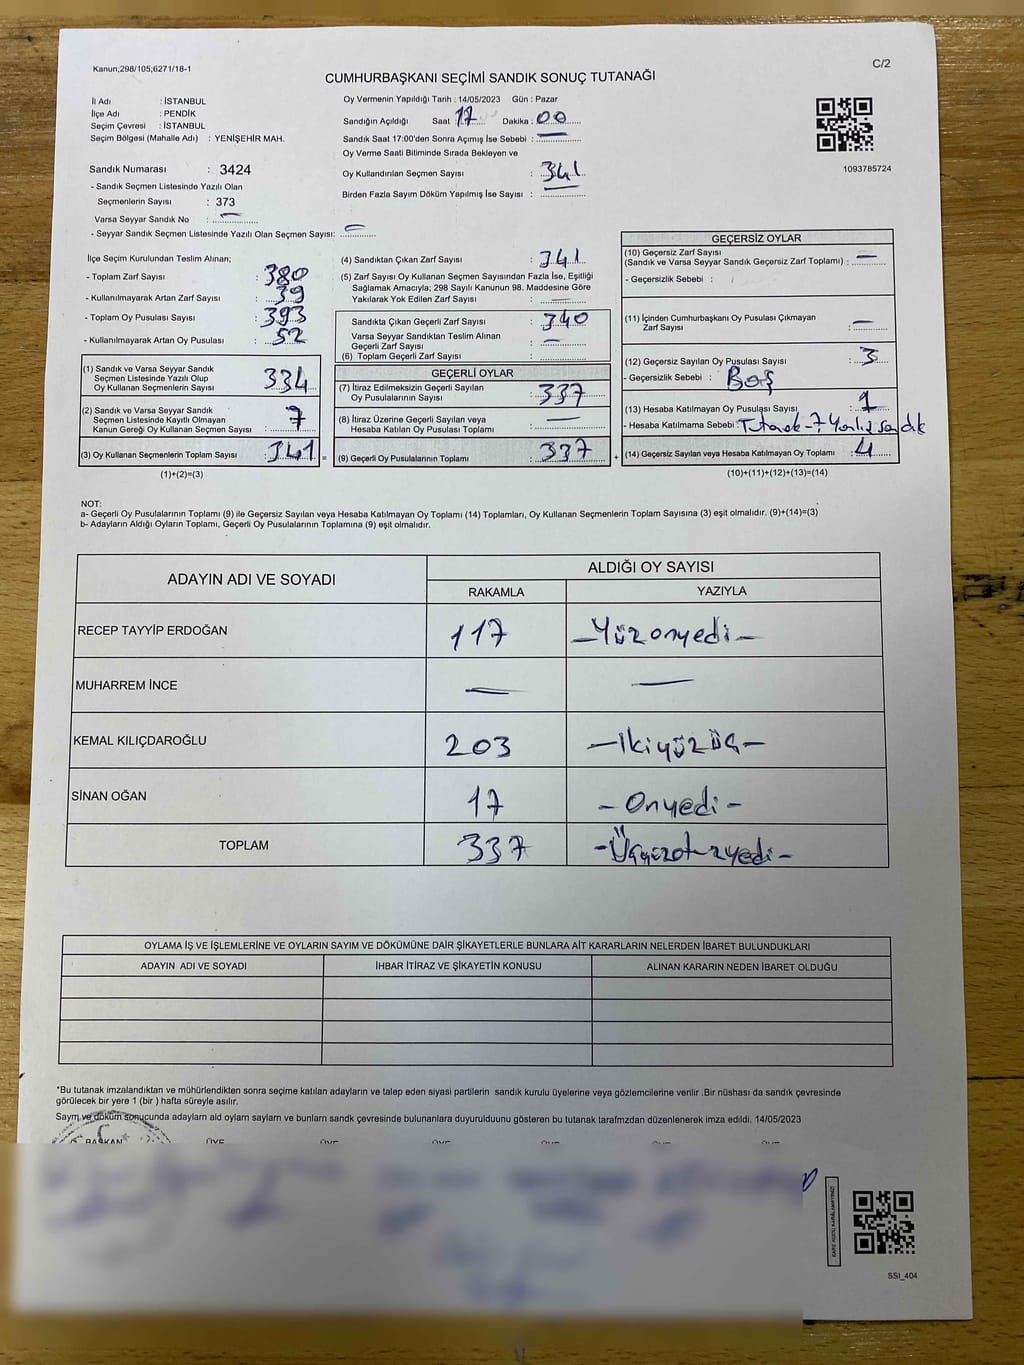 Kanun;298/105;6271/18-1
C/2
CUMHURBAŞKANI SEÇİMİ SANDIK SONUÇ TUTANAĞI
İl Adı : İSTANBUL
İlçe Adı : PENDİK
Seçim Çevresi : İSTANBUL
Seçim Bölgesi (Mahalle Adı) : YENİŞEHİR MAH.
Sandık Numarası : 3424
- Sandık Seçmen Listesinde Yazılı Olan
Seçmenlerin Sayısı : 373
Varsa Seyyar Sandık No : —
- Seyyar Sandık Seçmen Listesinde Yazılı Olan Seçmen Sayısı: —
Oy Vermenin Yapıldığı Tarih : 14/05/2023 Gün : Pazar
Sandığın Açıldığı Saat : 17 Dakika : 00
Sandık Saat 17:00'den Sonra Açımış İse Sebebi : —
Oy Verme Saati Bitiminde Sırada Bekleyen ve
Oy Kullandırılan Seçmen Sayısı : 341
Birden Fazla Sayım Döküm Yapılmış İse Sayısı : —
1093785724
İlçe Seçim Kurulundan Teslim Alınan;
- Toplam Zarf Sayısı : 380
- Kullanılmayarak Artan Zarf Sayısı : 39
- Toplam Oy Pusulası Sayısı : 393
- Kullanılmayarak Artan Oy Pusulası : 52
(1) Sandık ve Varsa Seyyar Sandık
Seçmen Listesinde Yazılı Olup
Oy Kullanan Seçmenlerin Sayısı : 334
(2) Sandık ve Varsa Seyyar Sandık
Seçmen Listesinde Kayıtlı Olmayan
Kanun Gereği Oy Kullanan Seçmen Sayısı : 7
(3) Oy Kullanan Seçmenlerin Toplam Sayısı : 341
(1)+(2)=(3)
(4) Sandıktan Çıkan Zarf Sayısı : 341
(5) Zarf Sayısı Oy Kullanan Seçmen Sayısından Fazla İse, Eşitliği
Sağlamak Amacıyla; 298 Sayılı Kanunun 98. Maddesine Göre
Yakılarak Yok Edilen Zarf Sayısı : —
Sandıkta Çıkan Geçerli Zarf Sayısı : 340
Varsa Seyyar Sandıktan Teslim Alınan
Geçerli Zarf Sayısı : —
(6) Toplam Geçerli Zarf Sayısı :
GEÇERLİ OYLAR
(7) İtiraz Edilmeksizin Geçerli Sayılan
Oy Pusulalarının Sayısı : 337
(8) İtiraz Üzerine Geçerli Sayılan veya
Hesaba Katılan Oy Pusulası Toplamı : —
(9) Geçerli Oy Pusulalarının Toplamı : 337
GEÇERSİZ OYLAR
(10) Geçersiz Zarf Sayısı
(Sandık ve Varsa Seyyar Sandık Geçersiz Zarf Toplamı) : —
- Geçersizlik Sebebi :
(11) İçinden Cumhurbaşkanı Oy Pusulası Çıkmayan
Zarf Sayısı : —
(12) Geçersiz Sayılan Oy Pusulası Sayısı : 3
- Geçersizlik Sebebi : Boş
(13) Hesaba Katılmayan Oy Pusulası Sayısı : 1
- Hesaba Katılmama Sebebi : Tutanak-7 Yanlış sandık
(14) Geçersiz Sayılan veya Hesaba Katılmayan Oy Toplamı : 4
(10)+(11)+(12)+(13)=(14)
NOT:
a- Geçerli Oy Pusulalarının Toplamı (9) ile Geçersiz Sayılan veya Hesaba Katılmayan Oy Toplamı (14) Toplamları, Oy Kullanan Seçmenlerin Toplam Sayısına (3) eşit olmalıdır. (9)+(14)=(3)
b- Adayların Aldığı Oyların Toplamı, Geçerli Oy Pusulalarının Toplamına (9) eşit olmalıdır.
ADAYIN ADI VE SOYADI
ALDIĞI OY SAYISI
RAKAMLA YAZIYLA
RECEP TAYYİP ERDOĞAN 117 -Yüzonyedi-
MUHARREM İNCE — —
KEMAL KILIÇDAROĞLU 203 -İkiyüzüç-
SİNAN OĞAN 17 -Onyedi-
TOPLAM 337 -Üçyüzotuzyedi-
OYLAMA İŞ VE İŞLEMLERİNE VE OYLARIN SAYIM VE DÖKÜMÜNE DAİR ŞİKAYETLERLE BUNLARA AİT KARARLARIN NELERDEN İBARET BULUNDUKLARI
ADAYIN ADI VE SOYADI İHBAR İTİRAZ VE ŞİKAYETİN KONUSU ALINAN KARARIN NEDEN İBARET OLDUĞU
*Bu tutanak imzalandıktan ve mühürlendikten sonra seçime katılan adayların ve talep eden siyasi partilerin sandık kurulu üyelerine veya gözlemcilerine verilir .Bir nüshası da sandık çevresinde
görülecek bir yere 1 (bir ) hafta süreyle asılır.
Sayım ve döküm sonucunda adayların ald oyların sayların ve bunların sandk çevresinde bulunanlara duyurulduunu gösteren bu tutanak tarafmzdan düzenlenerek imza edildi. 14/05/2023
BAŞKAN ÜYE ÜYE ÜYE ÜYE ÜYE ÜYE
SSI_404